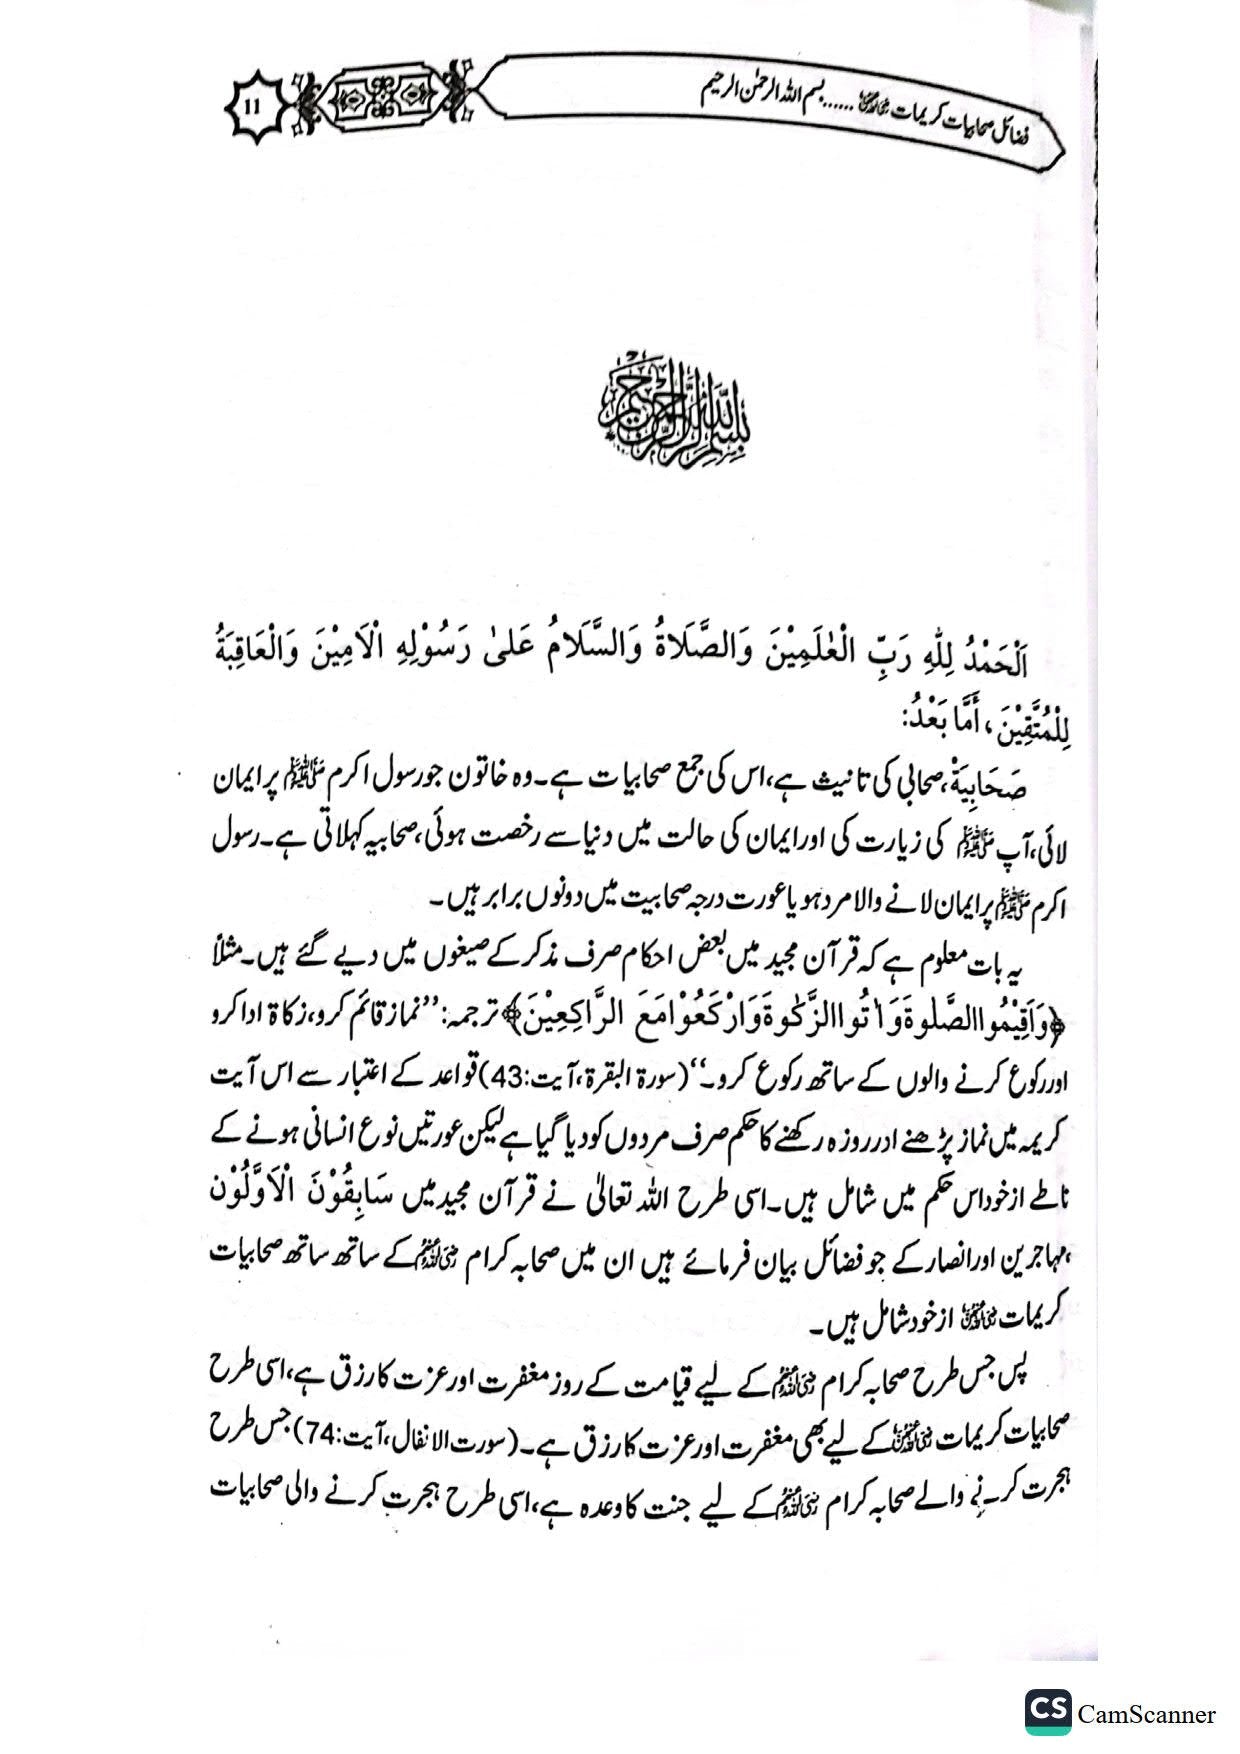 فضائل صحابیات کریمات رضی اللہ عنہن ...... بسم اللہ الرحمٰن الرحیم
11
بِسْمِ اللهِ الرَّحْمٰنِ الرَّحِيْمِ
اَلْحَمْدُ لِلّٰهِ رَبِّ الْعٰلَمِيْنَ وَالصَّلَاةُ وَالسَّلَامُ عَلىٰ رَسُوْلِهِ الْاَمِيْنَ وَالْعَاقِبَةُ
لِلْمُتَّقِيْنَ، أَمَّا بَعْدُ:
صَحَابِيَةْ، صحابی کی تانیث ہے، اس کی جمع صحابیات ہے۔ وہ خاتون جو رسول اکرم ﷺ پر ایمان
لائی، آپ ﷺ کی زیارت کی اور ایمان کی حالت میں دنیا سے رخصت ہوئی، صحابیہ کہلاتی ہے۔ رسول
اکرم ﷺ پر ایمان لانے والا مرد ہو یا عورت درجہ صحابیت میں دونوں برابر ہیں۔
یہ بات معلوم ہے کہ قرآن مجید میں بعض احکام صرف مذکر کے صیغوں میں دیے گئے ہیں۔ مثلاً
﴿وَاَقِيْمُوا الصَّلٰوةَ وَاٰتُوا الزَّكٰوةَ وَارْكَعُوْا مَعَ الرَّاكِعِيْنَ﴾ ترجمہ: ’’نماز قائم کرو، زکاۃ ادا کرو
اور رکوع کرنے والوں کے ساتھ رکوع کرو۔‘‘ (سورۃ البقرۃ، آیت:43) قواعد کے اعتبار سے اس آیت
کریمہ میں نماز پڑھنے ادر روزہ رکھنے کا حکم صرف مردوں کو دیا گیا ہے لیکن عورتیں نوع انسانی ہونے کے
ناطے از خود اس حکم میں شامل ہیں۔ اسی طرح اللہ تعالیٰ نے قرآن مجید میں سَابِقُوْنَ الْاَوَّلُوْن
،مہاجرین اور انصار کے جو فضائل بیان فرمائے ہیں ان میں صحابہ کرام رضی اللہ عنہم کے ساتھ ساتھ صحابیات
کریمات رضی اللہ عنہن از خود شامل ہیں۔
پس جس طرح صحابہ کرام رضی اللہ عنہم کے لیے قیامت کے روز مغفرت اور عزت کا رزق ہے، اسی طرح
صحابیات کریمات رضی اللہ عنہن کے لیے بھی مغفرت اور عزت کا رزق ہے۔ (سورت الانفال، آیت:74) جس طرح
ہجرت کرنے والے صحابہ کرام رضی اللہ عنہم کے لیے جنت کا وعدہ ہے، اسی طرح ہجرت کرنے والی صحابیات
CS CamScanner